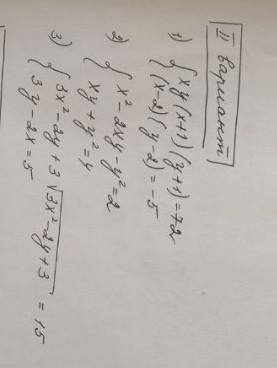 II вариант
1) { xy(x+1)(y+1)=72
(x-2)(y-2)=-5
2) { x²-2xy-y²=2
xy+y²=4
3) { 3x²-2y+3√3x²-2y+3 = 15
3y-2x=5